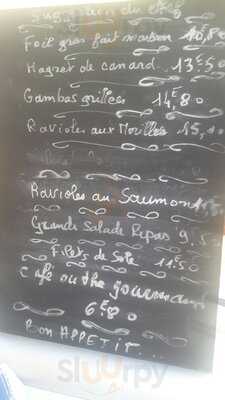 Suggestion du chef
Foie gras fait maison 10,80
Magret de canard.. 13€50
Gambas grillées 14€80
Ravioles aux Morilles 15,
Ravioles au Saumon
Grande Salade Repas 9.5
Filets de Sole 11€50
Café ou thé gourmand
6€80
BON APPETIT...
Sluurpy